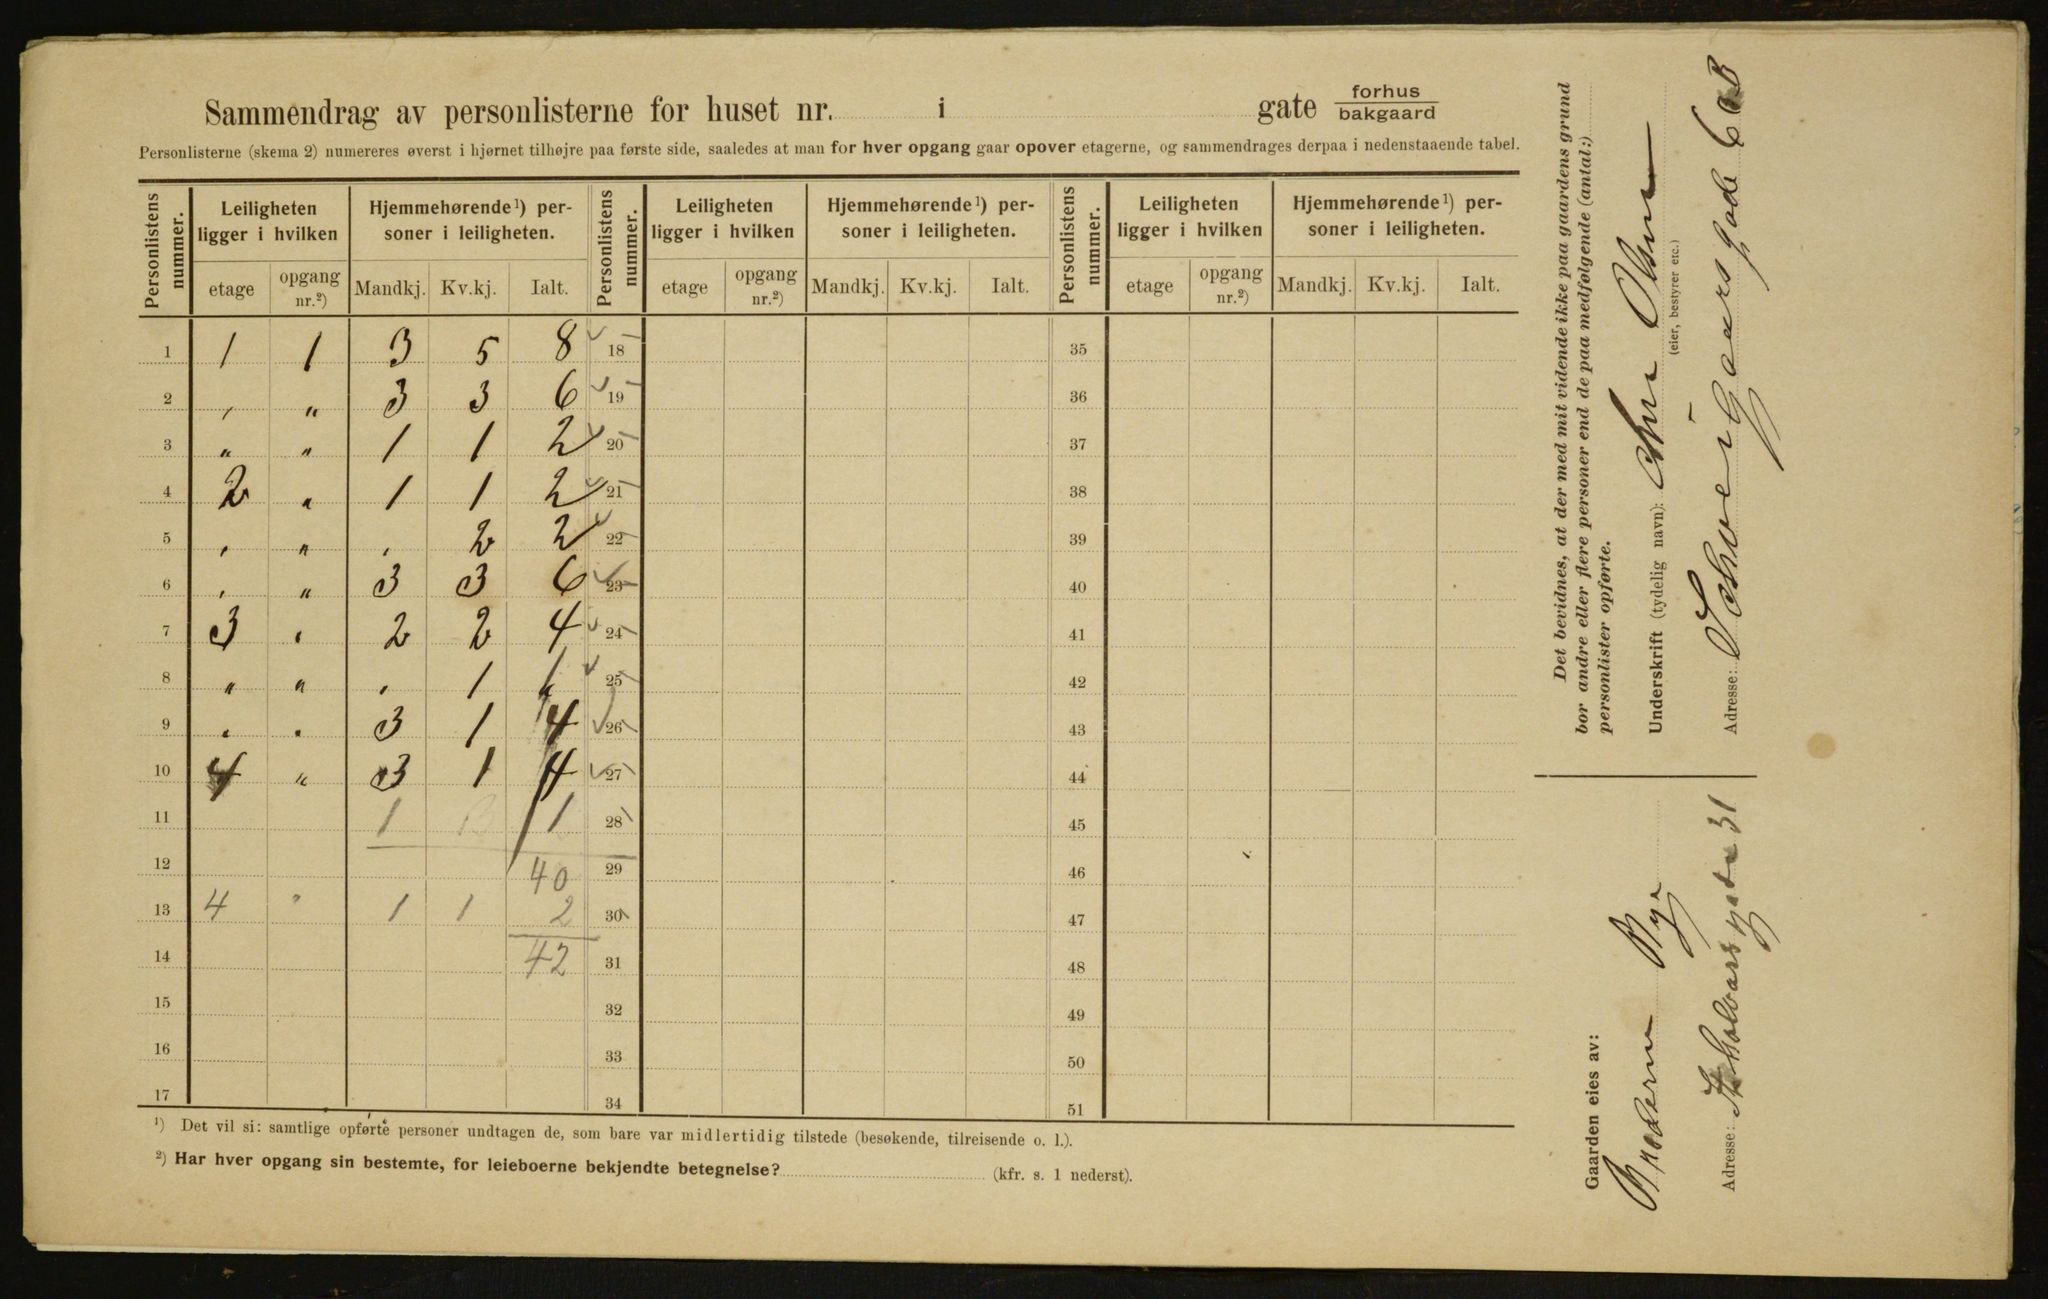 Sammendrag av personlisterne for huset nr. i gate forhus bakgaard
Personlisterne (skema 2) numereres øverst i hjørnet tilhøjre paa første side, saaledes at man for hver opgang gaar opover etagerne, og sammendrages derpaa i nedenstaaende tabel.
Personlistens nummer. Leiligheten ligger i hvilken Hjemmehørende ¹) personer i leiligheten. Personlistens nummer. Leiligheten ligger i hvilken Hjemmehørende ¹) personer i leiligheten. Personlistens nummer. Leiligheten ligger i hvilken Hjemmehørende ¹) personer i leiligheten.
etage opgang nr.²) Mandkj. Kv.kj. Ialt. etage opgang nr.²) Mandkj. Kv.kj. Ialt. etage opgang nr.²) Mandkj. Kv.kj. Ialt.
1 1 1 3 5 8 18 35
2 " " 3 3 6 19 36
3 " " 1 1 2 20 37
4 2 " 1 1 2 21 38
5 " " " 2 2 22 39
6 " " 3 3 6 23 40
7 3 " 2 2 4 24 41
8 " " " 1 1 25 42
9 " " 3 1 4 26 43
10 4 " 3 1 4 27 44
11 1 1 28 45
12 40 29 46
13 4 " 1 1 2 30 47
14 42 31 48
15 32 49
16 33 50
17 34 51
¹) Det vil si: samtlige opførte personer undtagen de, som bare var midlertidig tilstede (besøkende, tilreisende o. l.).
²) Har hver opgang sin bestemte, for leieboerne bekjendte betegnelse? (kfr. s. 1 nederst).
Det bevidnes, at der med mit vidende ikke paa gaardens grund
bor andre eller flere personer end de paa medfølgende (antal:)
personlister opførte.
Underskrift (tydelig navn): Olsen
(eier, bestyrer etc.)
Adresse: Schweigaarsgade 60B
Gaarden eies av:
Brødrene Rye
Adresse: 31